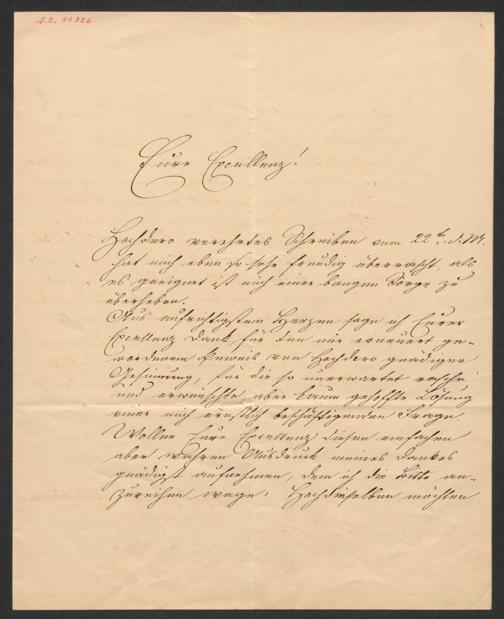 A.N. 16826
Eure Excellenz!
Hochdero verehrtes Schreiben vom 22t. d. M.
hat mich eben so sehr freudig überrascht, als
es geeignet ist mich einer bangen Sorge zu
überheben.
Aus aufrichtigstem Herzen sage ich Eurer
Excellenz Dank für den mir erneuert ge-
wordenen Beweis von Hochdero gnädiger
Gesinnung, für die so unerwartet rasche
und erwünschte aber kaum gehoffte Lösung
einer mich ernstlich beschäftigenden Frage.
Wollen Eure Excellenz diesen einfachen
aber wahren Ausdruck meines Dankes
gnädigst aufnehmen, dem ich die Bitte an-
zureihen wage: Hochdieselben möchten